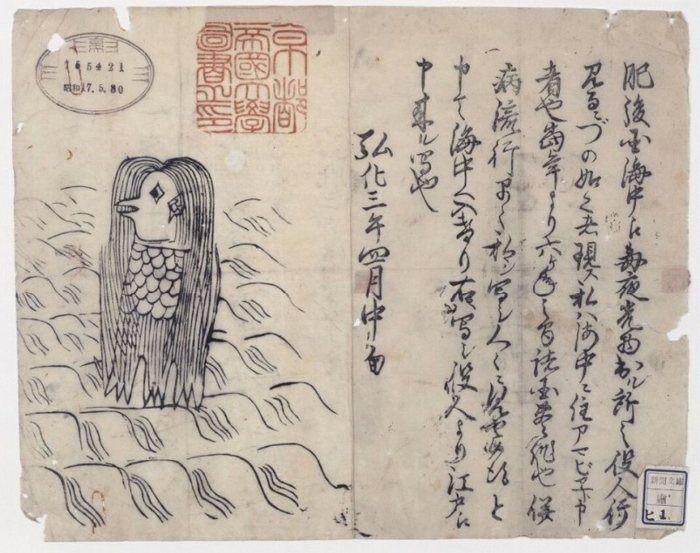 肥後国海中え毎夜光物出ル所之役人行
見るニづの如く者現ス私ハ海中ニ住アマビヱト申
者也当年より六ヶ年之間諸国豊作也併
病流行早々私ヲ写シ人々ニ見せ候得と
申て海中へ入けり右写シ役人より江戸え
申来ル写也
弘化三年四月中旬
京都
帝國大學
圖書之印
165421
昭和17.5.30
新聞文庫
繪
ヒ 1